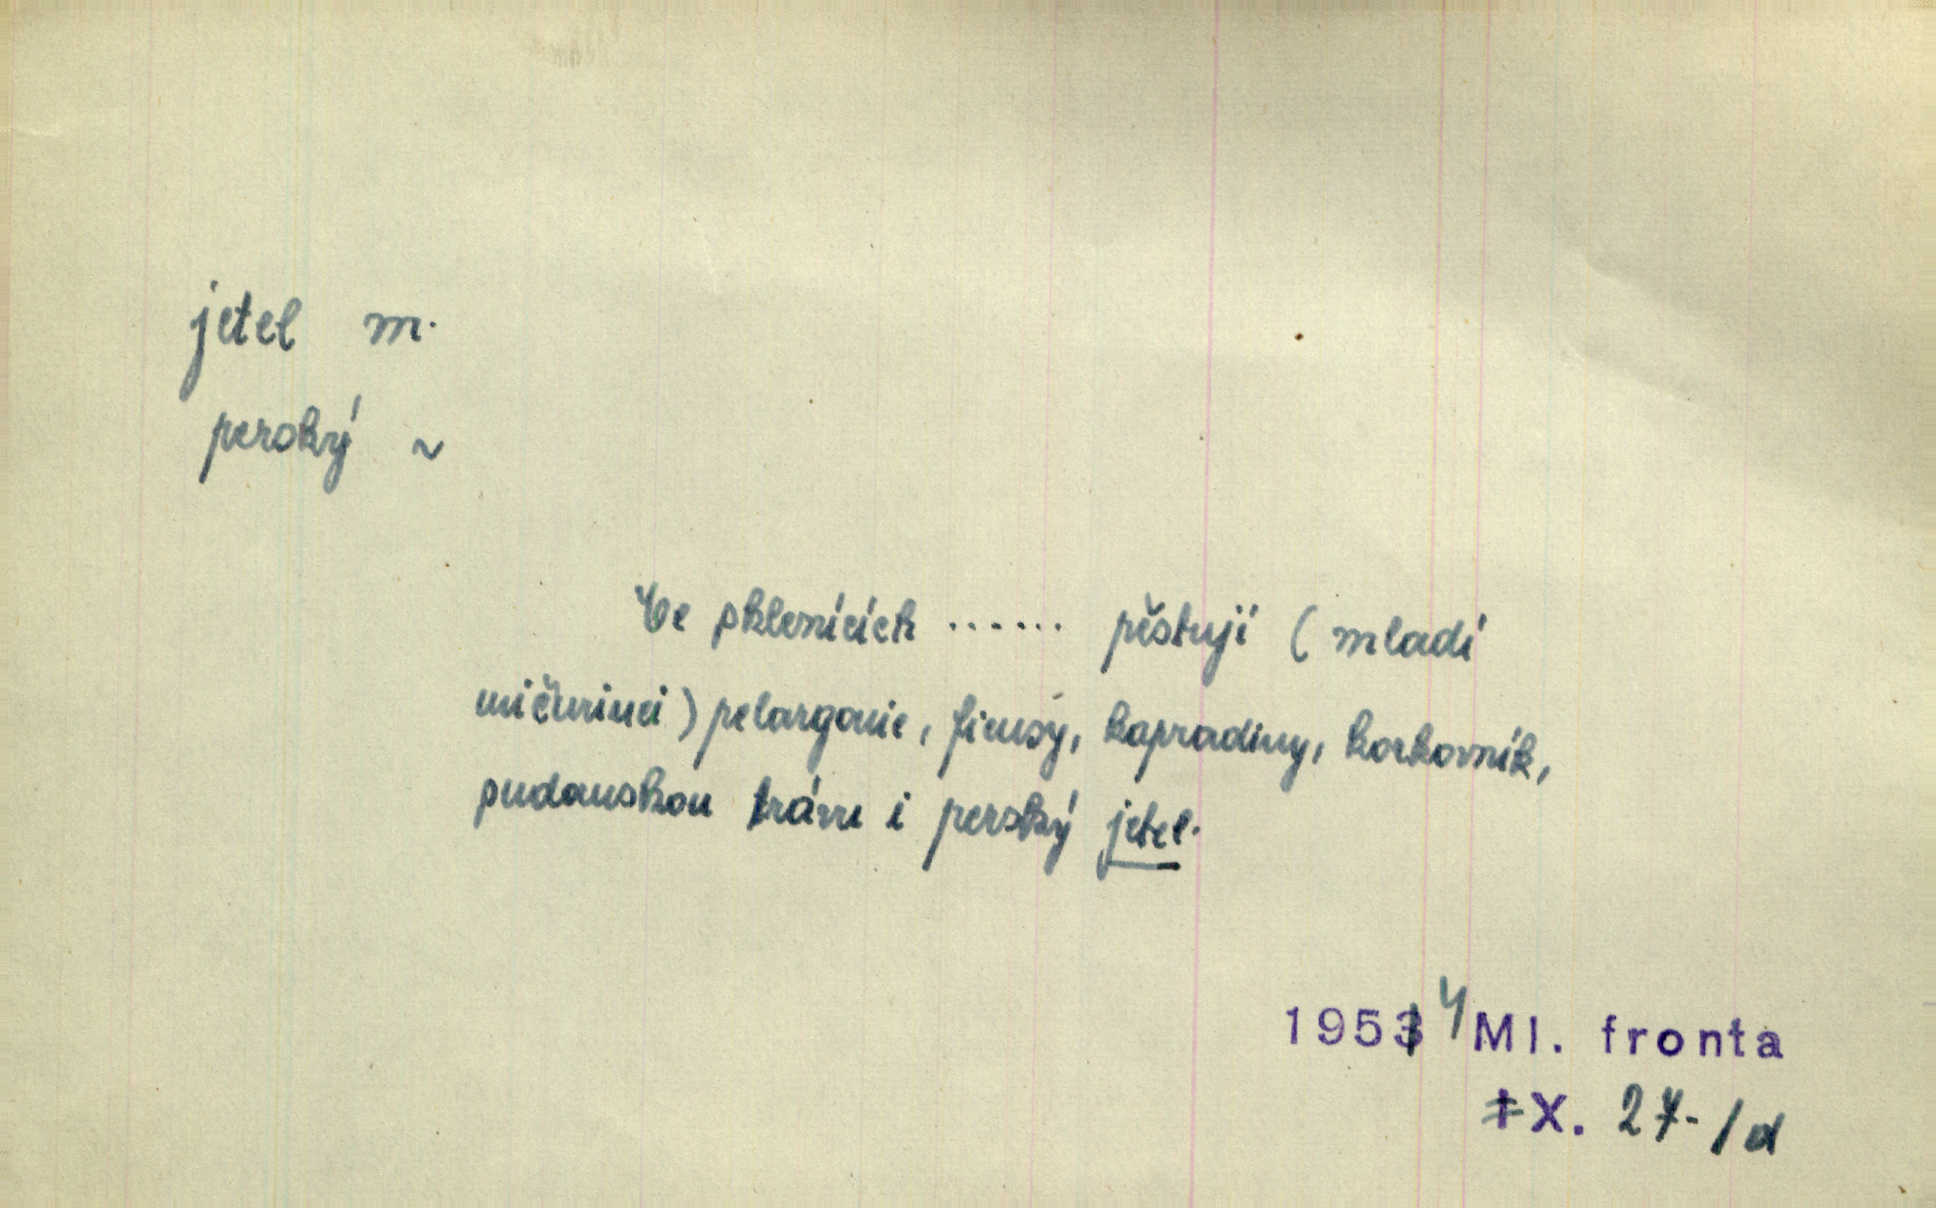 jetel m.
perský ~
Ve sklenících ...... pěstují (mladí
mičurinci) pelargonie, fikusy, kapradiny, korkovník,
sudanskou trávu i perský jetel.
1953 4 Ml. fronta
IX. 27-/d